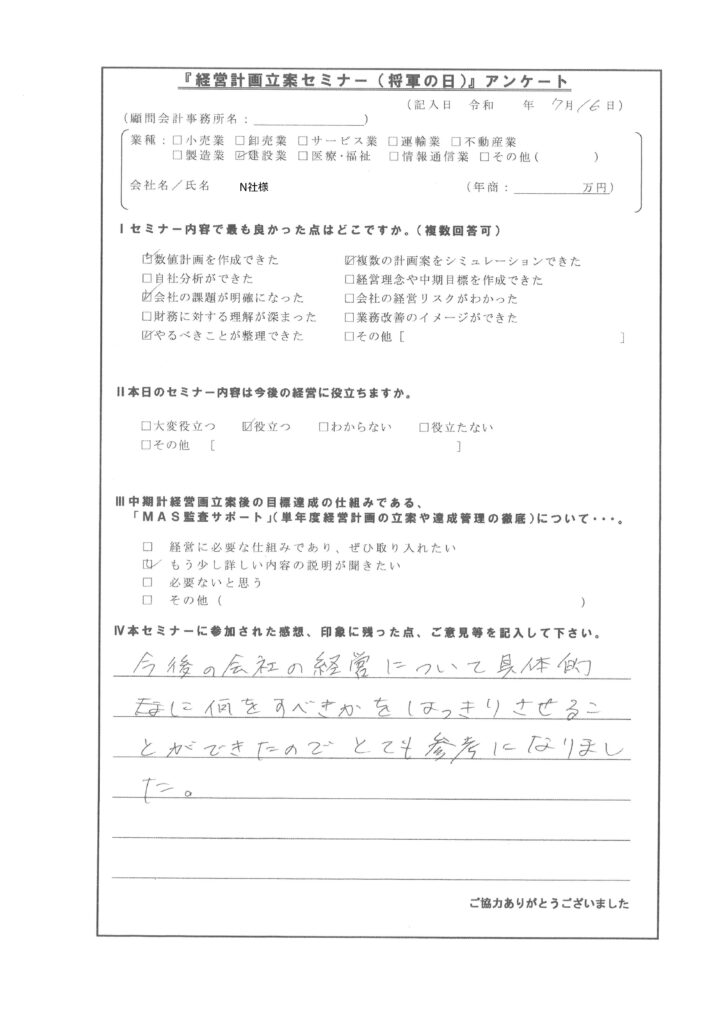 『経営計画立案セミナー（将軍の日）』アンケート
（記入日　令和　　年　7月16日）
（顧問会計事務所名：＿＿＿＿＿＿＿＿＿＿）
業種：□小売業　□卸売業　□サービス業　□運輸業　□不動産業
□製造業　☑建設業　□医療・福祉　□情報通信業　□その他（　　　　）
会社名／氏名　N社様　（年商：＿＿＿＿＿＿万円）
Ⅰセミナー内容で最も良かった点はどこですか。（複数回答可）
☑数値計画を作成できた　☑複数の計画案をシミュレーションできた
□自社分析ができた　□経営理念や中期目標を作成できた
☑会社の課題が明確になった　□会社の経営リスクがわかった
□財務に対する理解が深まった　□業務改善のイメージができた
☑やるべきことが整理できた　□その他［　　　　　　　　］
Ⅱ本日のセミナー内容は今後の経営に役立ちますか。
□大変役立つ　☑役立つ　□わからない　□役立たない
□その他　［　　　　　　　　　　］
Ⅲ中期計経営画立案後の目標達成の仕組みである、
「ＭＡＳ監査サポート」（単年度経営計画の立案や達成管理の徹底）について・・・。
□　経営に必要な仕組みであり、ぜひ取り入れたい
☑　もう少し詳しい内容の説明が聞きたい
□　必要ないと思う
□　その他（　　　　　　　　　　）
Ⅳ本セミナーに参加された感想、印象に残った点、ご意見等を記入して下さい。
今後の会社の経営について具体的
なに何をすべきかをはっきりさせるこ
とができたのでとても参考になりまし
た。
ご協力ありがとうございました